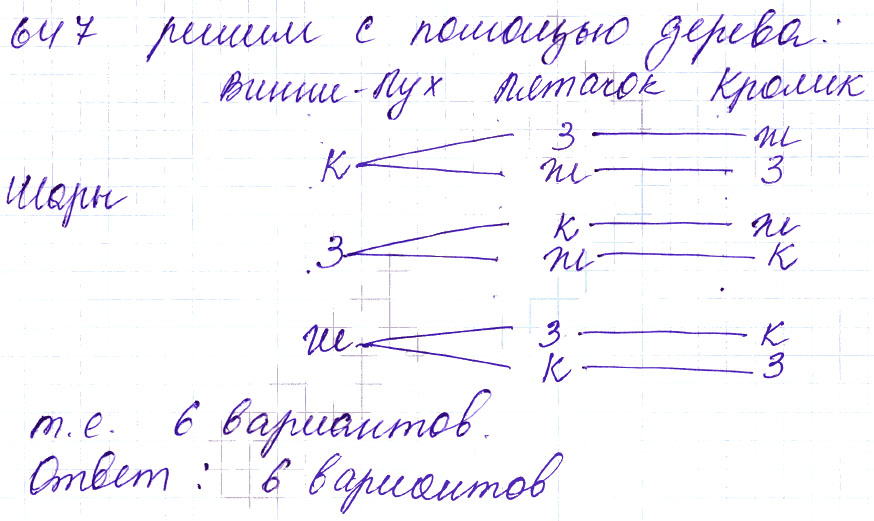 647 решим с помощью дерева:
Винни-Пух Пятачок Кролик
К З Ж
Ж З
Шары
З К Ж
Ж К
Ж З К
К З
т.е. 6 вариантов.
Ответ: 6 вариантов